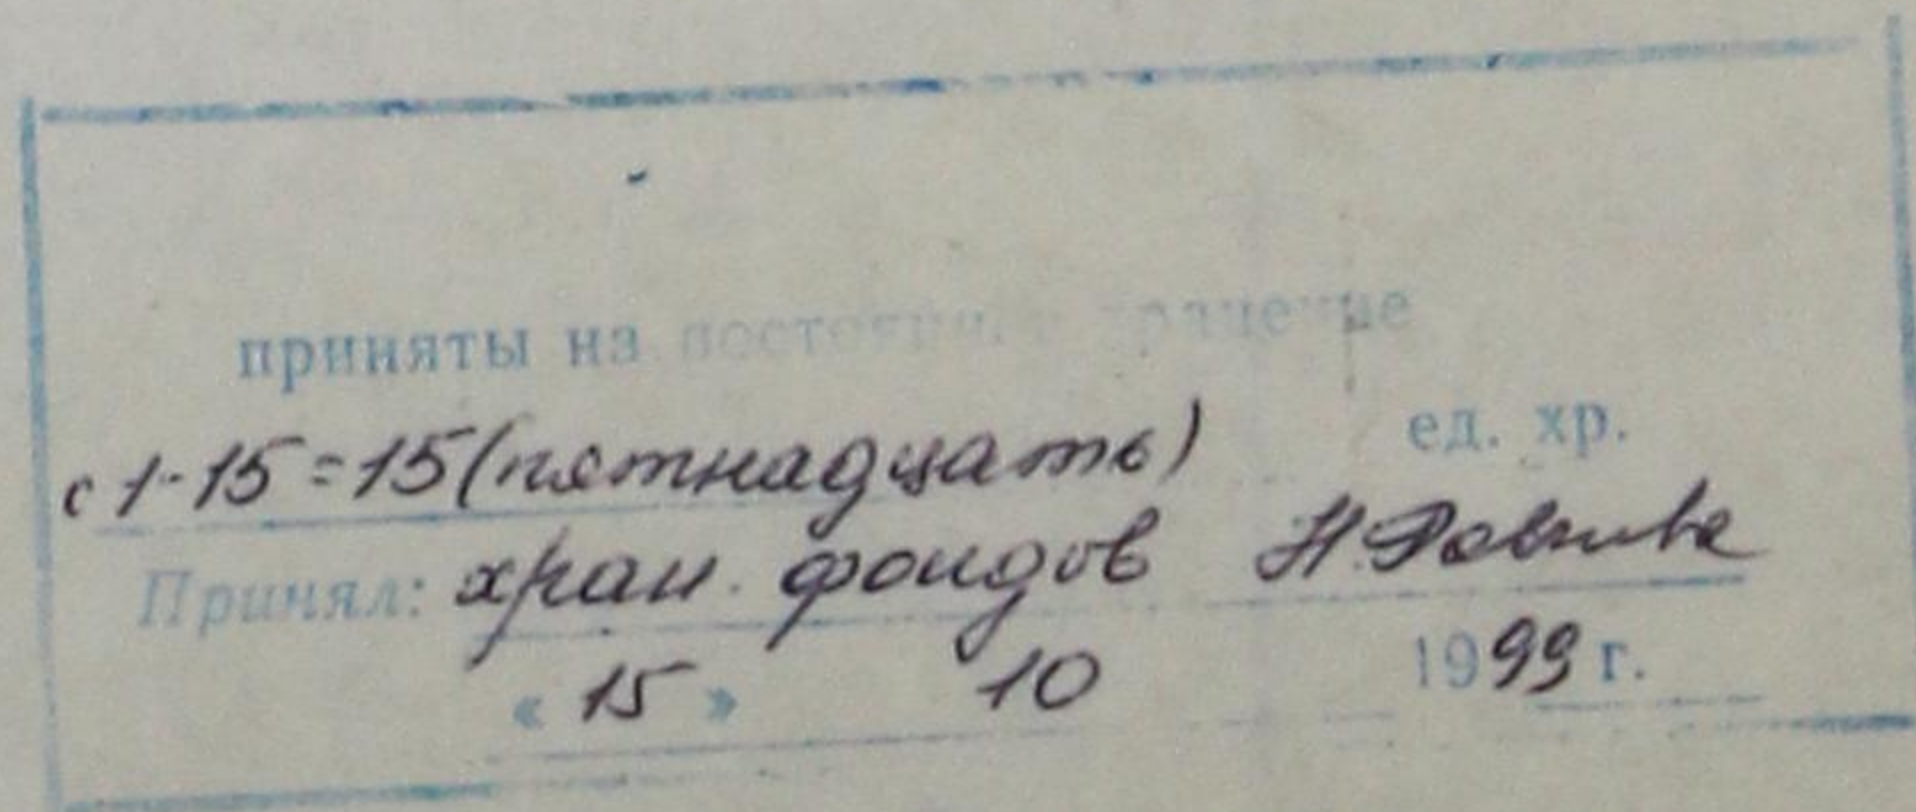 приняты на постоянное хранение
с 1-15=15 (пятнадцать) ед. хр.
Принял: хран. фондов Н.
« 15 » 10 1999 г.